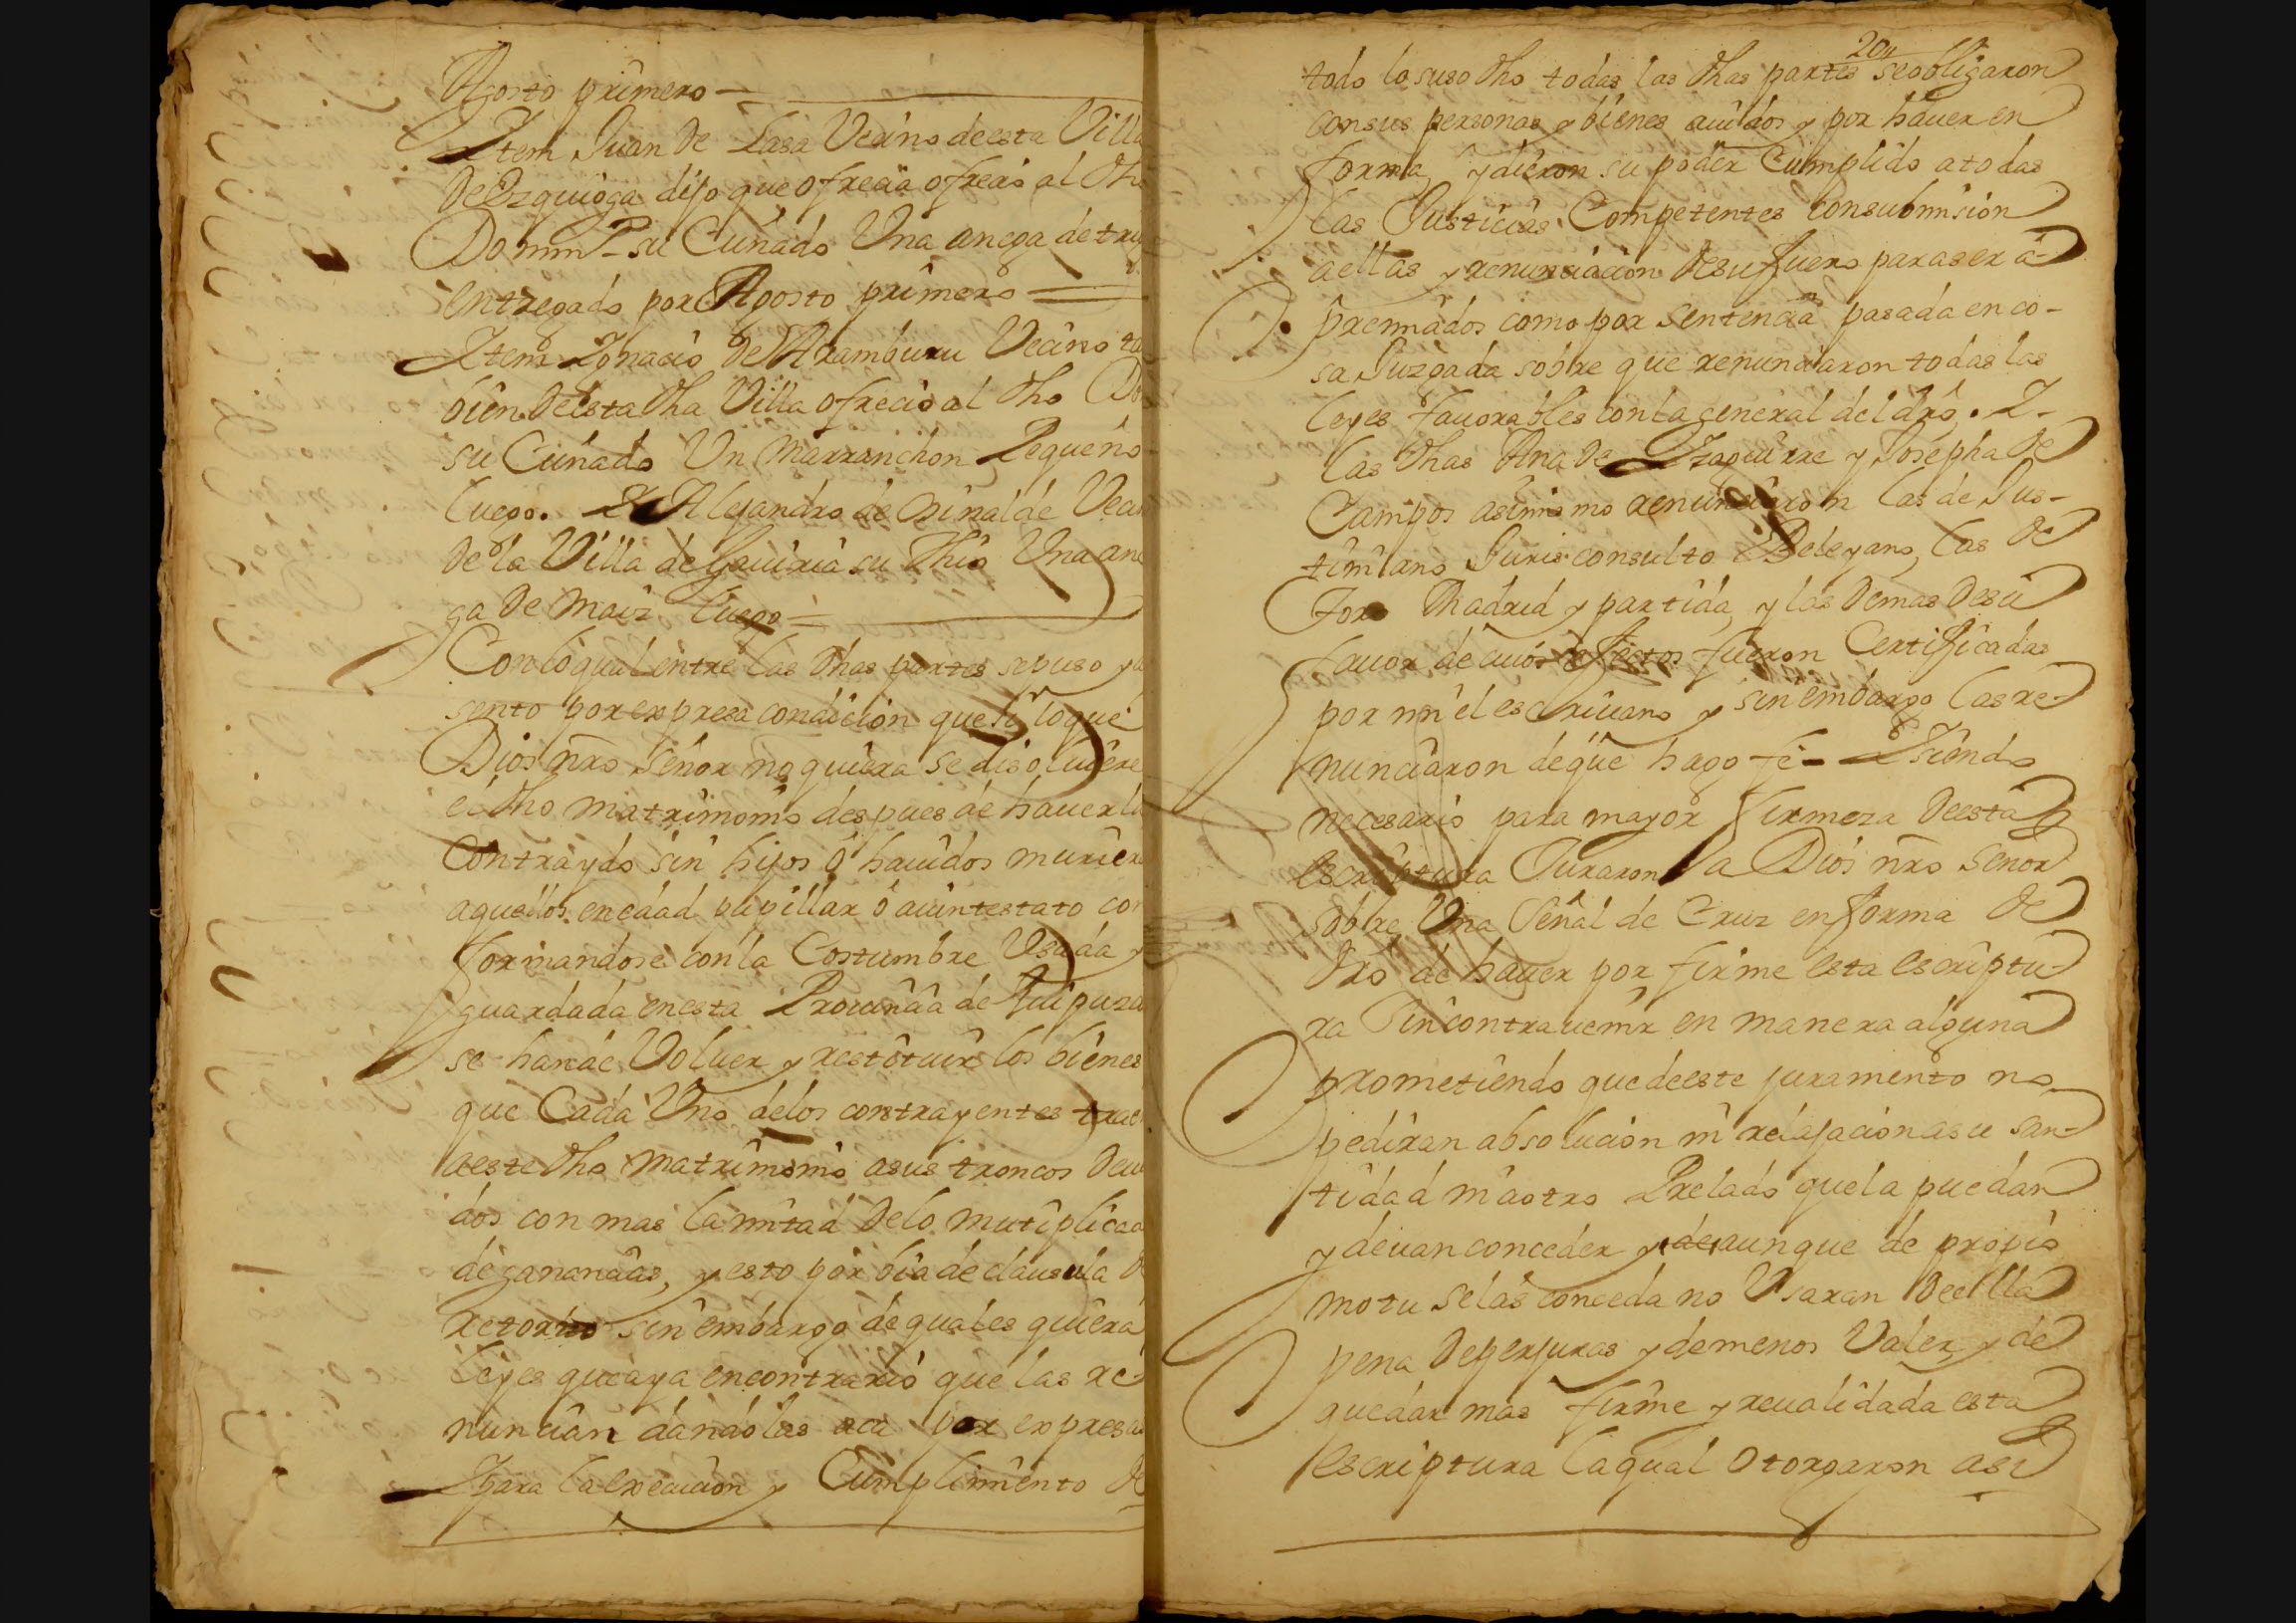 Agosto primero
Item Juan de Lasa Vecino de esta Villa
de Ezquioga dijo que ofrecia ofrecio al dho
Domin P. su Cuñado Una anega de tri
entregado por Agosto primero
Item Ignacio de Aramburu Vecino ta
bien de esta dha Villa ofrecio al dho Do
su Cuñado Un Marranchon Pequeño
luego. Y Alejandro de Minalde Veci
de la Villa de Gauiria su Thio Una ane
ga de Maiz luego
Con lo qual entre las dhas partes se puso y a
sento por expresa condicion que si lo que
Dios nro Señor no quiera se disoluiere
el dho matrimonio despues de hauerlo
Contraydo sin hijos ó hauidos murier
aquellos en edad pupillar ó auintestato co
formandose con la Costumbre Usada y
guardada en esta Prouincia de Guipuzcu
se han de Voluer y restotuir los bienes
que Cada Uno de los contrayentes trae
a este dho matrimonio a sus troncos deui
dos con mas la mitad de lo mutiplicad
de ganancias, y esto por bia de clausula d
retorno sin embargo de quales quiera
leyes que aya en contrario que las re
nuncian dandolas aca por expresa
Y para la execucion y Cumplimiento de
204
todo lo suso dho todas las dhas partes se obligaron
con sus personas y bienes auidos y por hauer en
forma, y dieron su poder Cumplido a todas
las Justicias Competentes con submision
a ellas y renunciacion de su fuero para ser a-
premiados como por sentencia pasada en co-
sa Juzgada sobre que renunciaron todas las
leyes fauorables con la general del dro. Y-
las dhas Ana de Yzaguirre y Josepha de
Campos asimismo renunciaron las de Jus-
timiano Jurisconsulto Beleyano, las de
Toro Madrid y partida, y las demas de su
fauor de cuios efectos fueron Certificadas
por mi el escriuano y sin embargo las re-
nunciaron de que hago fe- Y siendo
necesario para mayor firmeza de esta
escriptura Juraron a Dios nro Señor
sobre Una Señal de Cruz en forma de
dro de hauer por firme esta escriptu-
ra Sin contrauenir en manera alguna
prometiendo que de este juramento no
pediran absolucion ni relajacion a su san-
tidad ni a otro Prelado que la puedan
y deuan conceder y de aunque de propio
motu se las conceda no Usaran de ella
pena de perjuras y de menos Valer, y de
quedar mas firme y reualidada esta
escriptura la qual otorgaron asi